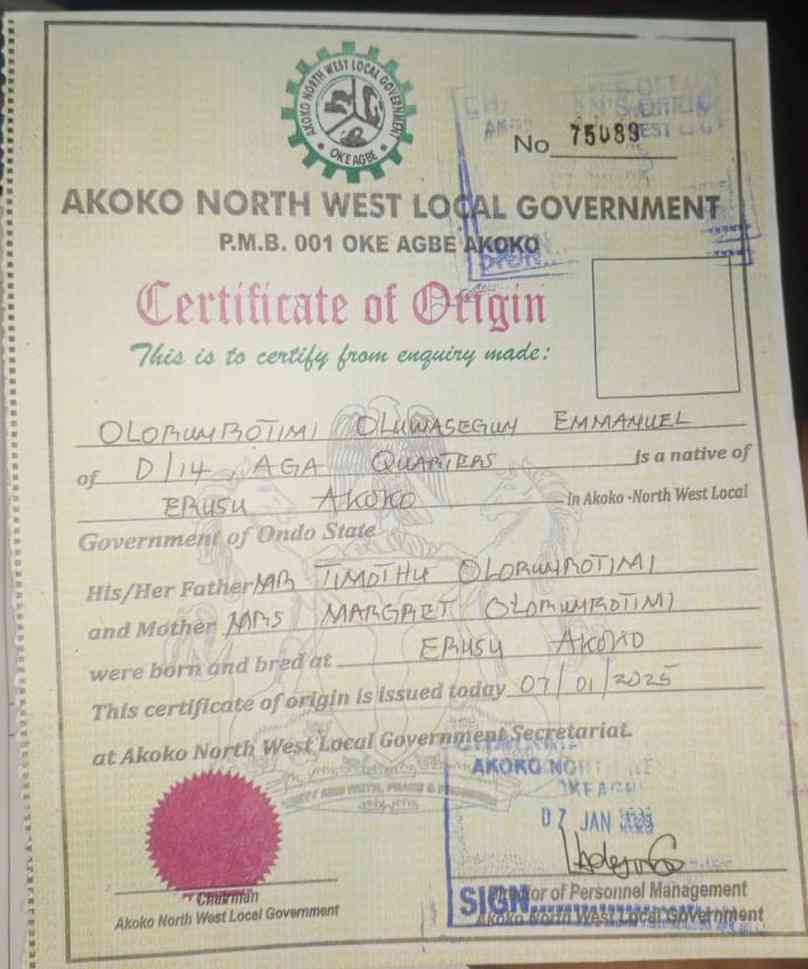 AKOKO NORTH WEST LOCAL GOVERNMENT
OKE AGBE
No 75089
AKOKO NORTH WEST LOCAL GOVERNMENT
P.M.B. 001 OKE AGBE AKOKO
Certificate of Origin
This is to certify from enquiry made:
OLORUNROTIMI OLUWASEGUN EMMANUEL
of D/14, AGA QUARTERS is a native of
ERUSU AKOKO in Akoko -North West Local
Government of Ondo State
His/Her Father MR TIMOTHY OLORUNROTIMI
and Mother MRS MARGRET OLORUNROTIMI
were born and bred at ERUSU AKOKO
This certificate of origin is issued today 07/01/2025
at Akoko North West Local Government Secretariat.
AKOKO NORTH
07 JAN
SIGN
Chairman
Akoko North West Local Government
of Personnel Management
Akoko North West Local Government